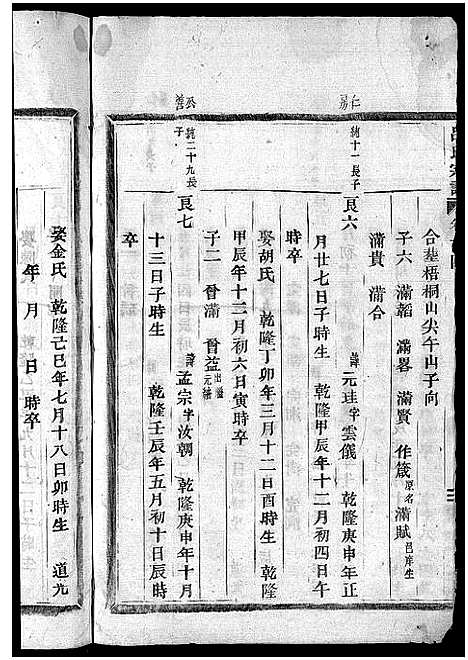 合塟梧桐山尖午山子向
子六 滿韜 滿畧 滿賢 作箴 原名滿賦 邑庠生
滿貴 滿合
仁房
純十一長子 良六 諱元珪字雲儀 乾隆庚申年正
月廿七日子時生 乾隆甲辰年十二月初四日午
時卒
娶胡氏 乾隆丁卯年三月十二日酉時生 乾隆
甲辰年十二月初六日寅時卒
子二 晉滿 晉益 出繼元
純二十九長子 良七 諱孟宗字汝朝 乾隆庚申年十月
十三日子時生 乾隆壬辰年五月初十日辰時
卒
娶金氏 乾隆己巳年七月十八日卯時生 道光
年 月 日 時卒